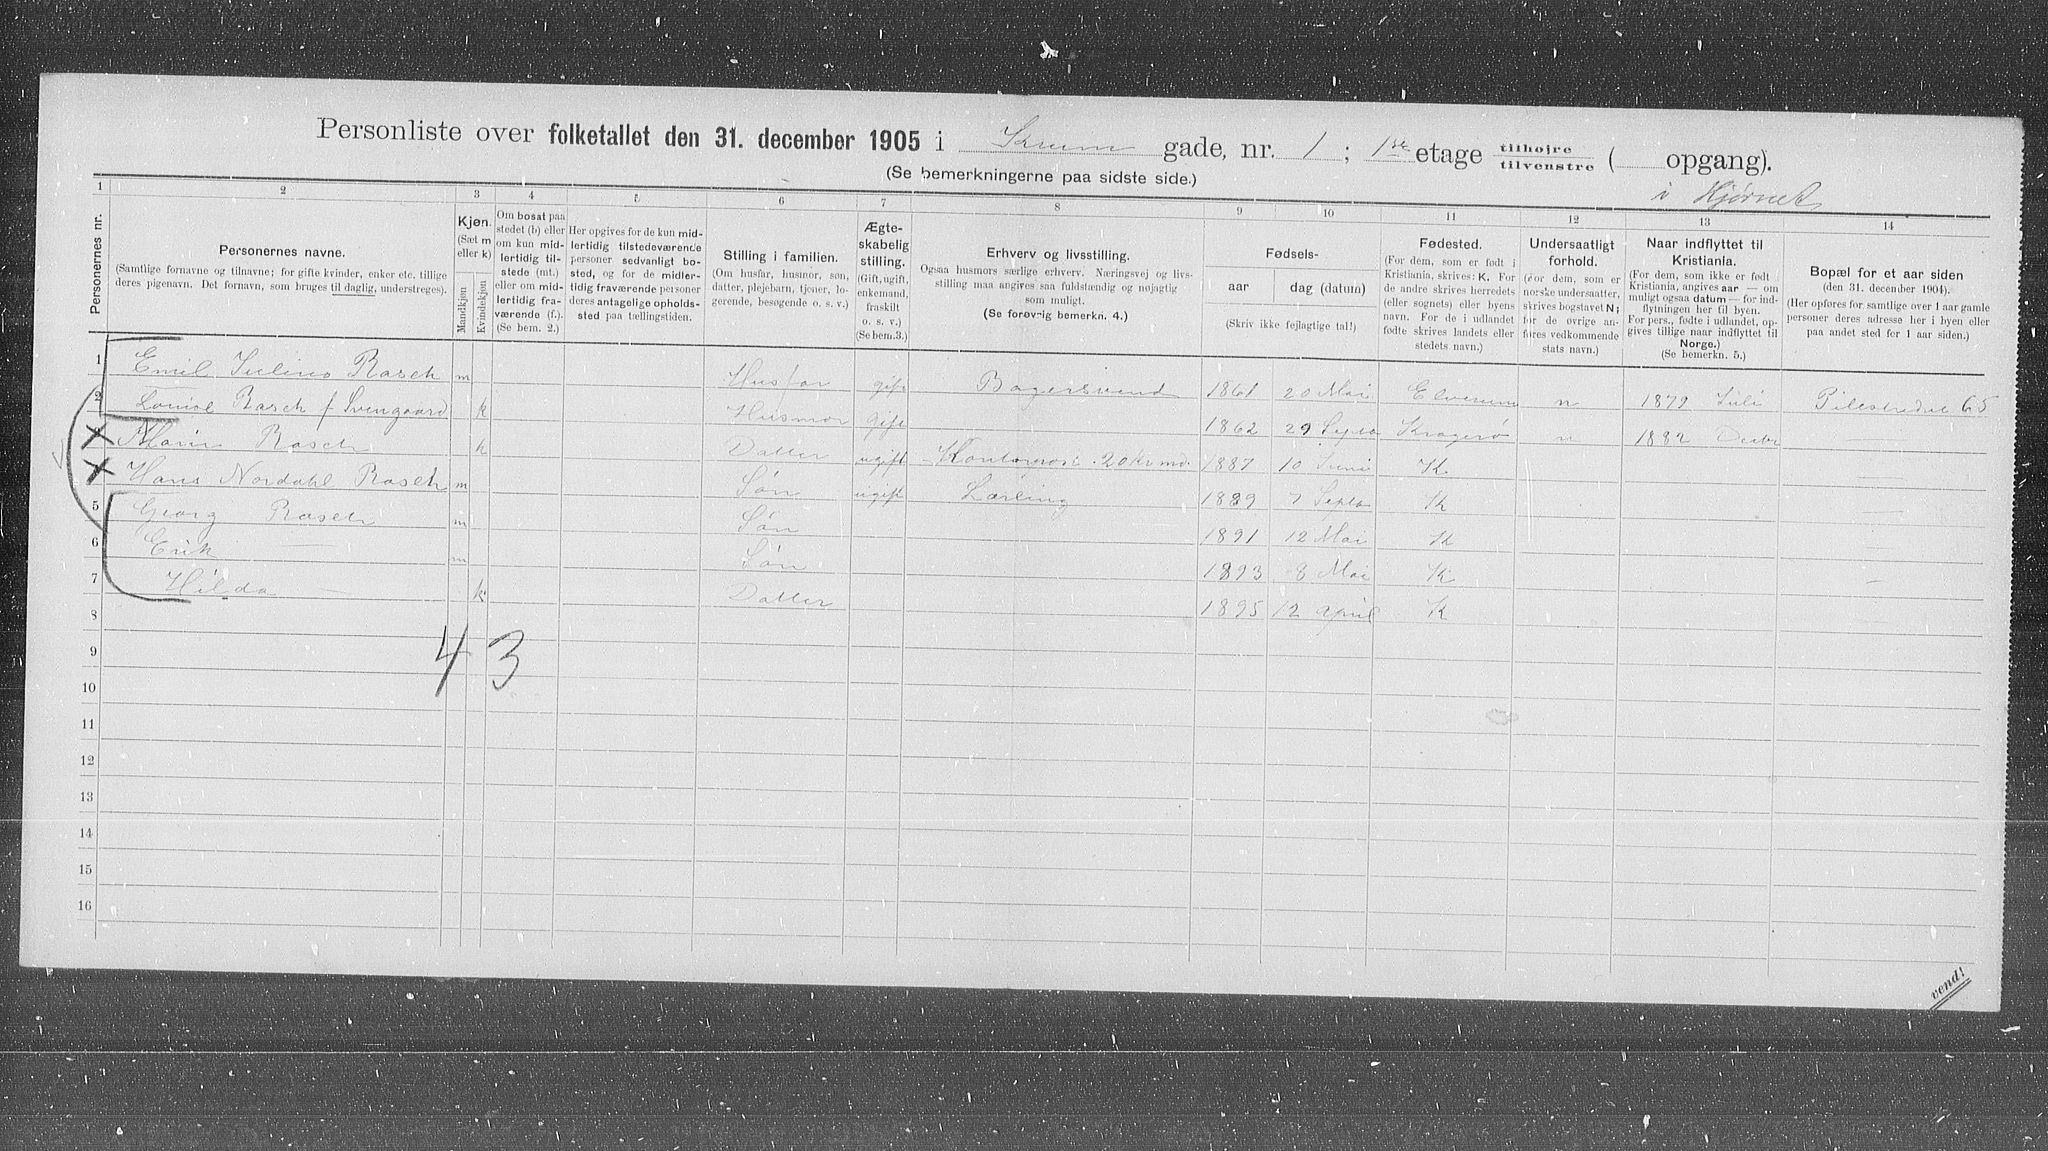 Personliste over folketallet den 31. december 1905 i Krum gade, nr. 1 ; 1ste etage tilhøjre / tilvenstre ( opgang).
(Se bemerkningerne paa sidste side.)
i Hjørnet
1 2 3 4 5 6 7 8 9 10 11 12 13 14
Personernes nr.
Personernes navne.
(Samtlige fornavne og tilnavne; for gifte kvinder, enker etc. tillige
deres pigenavn. Det fornavn, som bruges til daglig, understreges).
Kjøn.
(Sæt m
eller k)
Mandkjøn
Kvindekjøn
Om bosat paa
stedet (b) eller
om kun mid-
lertidig til-
stede (mt.)
eller om mid-
lertidig fra-
værende (f.).
(Se bem. 2.)
Her opgives for de kun mid-
lertidig tilstedeværende
personer sedvanligt bo-
sted, og for de midler-
tidig fraværende personer
deres antagelige opholds-
sted paa tællingstiden.
Stilling i familien.
(Om husfar, husmor, søn,
datter, plejebarn, tjener, lo-
gerende, besøgende o. s. v.)
Ægte-
skabelig
stilling.
(Gift, ugift,
enkemand,
fraskilt
o. s. v.)
(Se bem. 3.)
Erhverv og livsstilling.
Ogsaa husmors særlige erhverv. Næringsvej og livs-
stilling maa angives saa fuldstændig og nøjagtig
som muligt.
(Se forøvrig bemerkn. 4.)
Fødsels-
aar dag (datum)
(Skriv ikke fejlagtige tal!)
Fødested.
(For dem, som er født i
Kristiania, skrives: K. For
de andre skrives herredets
(eller sognets) eller byens
navn. For de i udlandet
fødte skrives landets eller
stedets navn.)
Undersaatligt
forhold.
(For dem, som er
norske undersaatter,
skrives bogstavet N;
for de øvrige an-
føres vedkommende
stats navn.)
Naar indflyttet til
Kristiania.
(For dem, som ikke er født i
Kristiania, angives aar — om
muligt ogsaa datum — for ind-
flytningen her til byen.
For pers., fødte i udlandet, op-
gives tillige naar indflyttet til
Norge.)
(Se bemerkn. 5.)
Bopæl for et aar siden
(den 31. december 1904).
(Her opføres for samtlige over 1 aar gamle
personer deres adresse her i byen eller
paa andet sted for 1 aar siden.)
1 Emil Julius Rasch m Husfar gift Bagersvend 1861 20 Mai Elverum n 1879 Juli Pilestrædet 65
2 Louise Rasch f Svengaard k Husmor gift 1862 29 Septb Kragerø n 1882 Decbr —
Marie Rasch k Datter ugift 20 kr md. 1887 10 Juni K —
Hans Nordahl Rasch m Søn ugift Lærling 1889 7 Septb K —
5 Georg Rasch m Søn 1891 12 Mai K —
6 Erik — m Søn 1893 8 Mai K —
7 Hilda — k Datter 1895 12 april K —
8
4 3
9
10
11
12
13
14
15
16
vend!